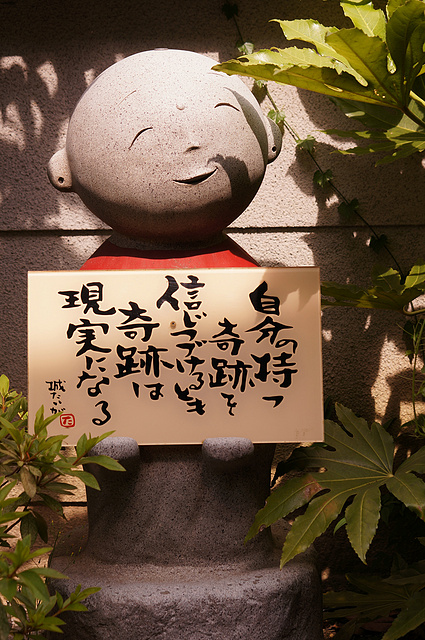 自分の持つ
奇跡を
信じつづけるとき
奇跡は
現実になる
城たいが